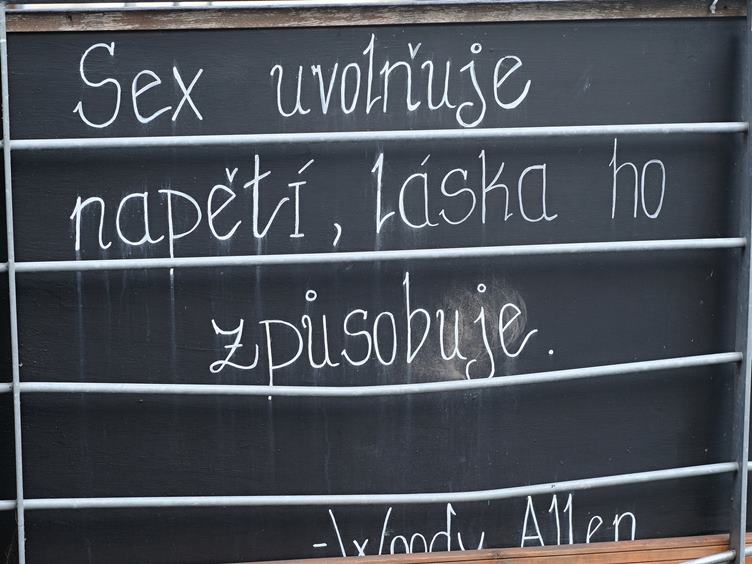 Sex uvolňuje
napětí, láska ho
způsobuje.
-Woody Allen